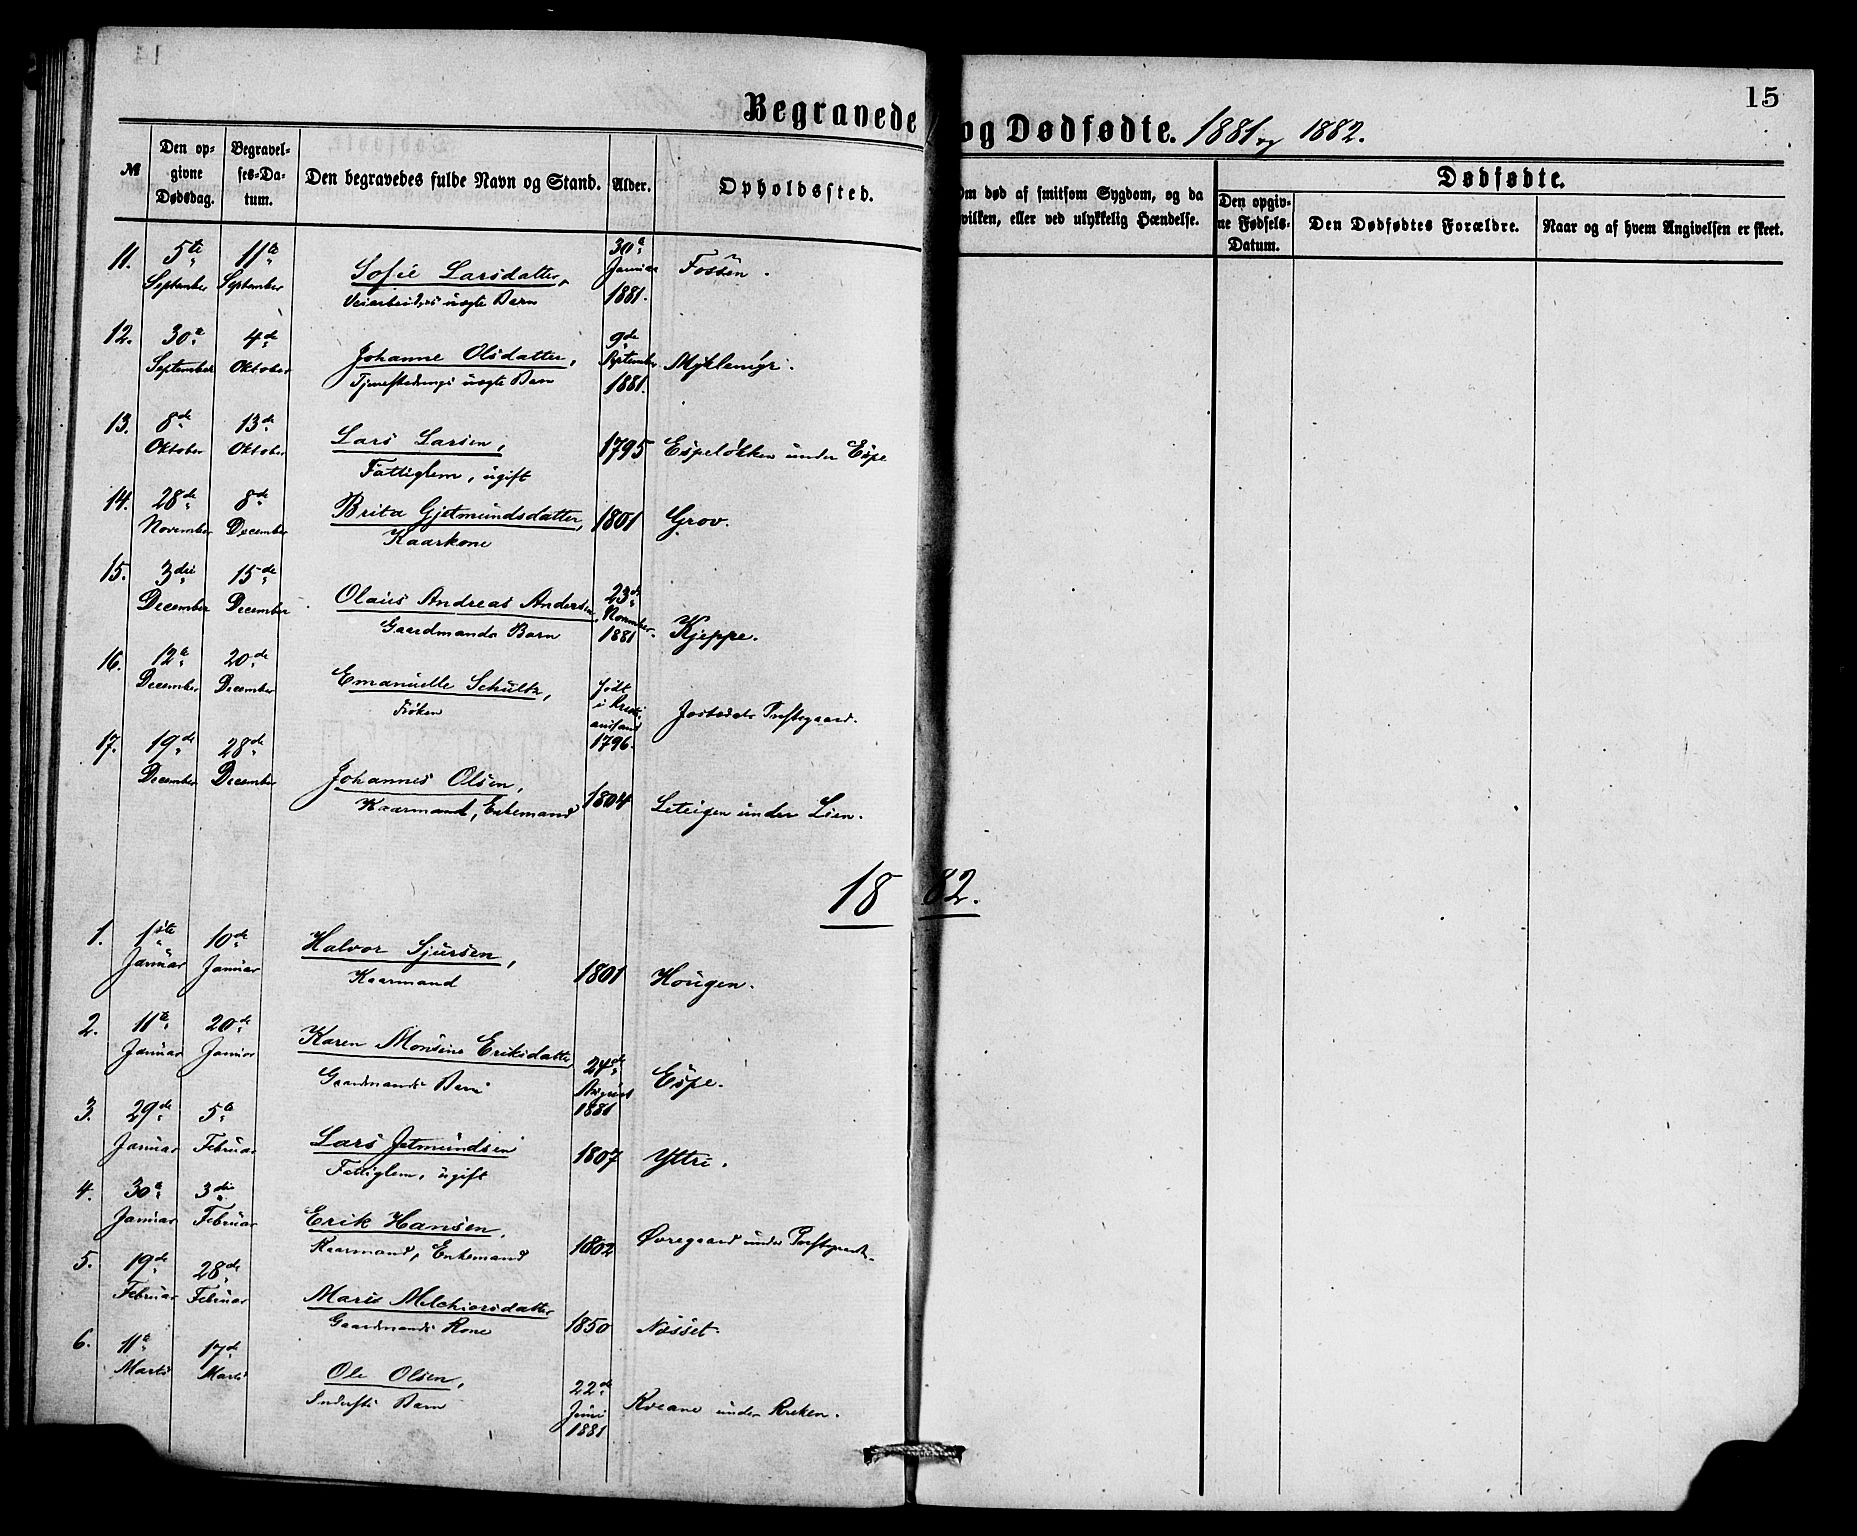 15
Begravede og Dødfødte. 1881 og 1882.
№
Den opgivne Dødsdag.
Begravelses-Datum.
Den begravedes fulde Navn og Stand.
Alder.
Opholdssted.
Om død af smitsom Sygdom, og da
vilken, eller ved ulykkelig Hændelse.
Dødfødte.
Den opgivne Fødsels-Datum.
Den Dødfødtes Forældre.
Naar og af hvem Angivelsen er skeet.
11. 5te September 11te September Sofie Larsdatter, 30te Januar 1881. Fossen.
Veiarbeiders uægte Barn
12. 30te September 4de Oktober Johanne Olsdatter, 9de September 1881. Myklemyr.
uægte Barn
13. 8de Oktober 13de Oktober Lars Larsen, 1795 Espeløkken under Espe
Fattiglem, ugift
14. 28de November 8de December Brita Gjetmundsdatter, 1801 Grov.
Kaarkone
15. 3die December 15de December Olaus Andreas Andersen, 23de November 1881 Kjeppe.
Gaardmands Barn
16. 12te December 20de December Emanuelle Schultz, født i Kristiansand 1796. Jostedals Præstegaard.
Frøken
17. 19de December 28de December Johannes Olsen, 1804 Leteigen under Lien.
Kaarmand, Enkemand
1882.
1. 1ste Januar 10de Januar Halvor Sjursen, 1801 Hougen.
Kaarmand
2. 11te Januar 20de Januar Karen Monsine Eriksdatter, 24de August 1881 Espe.
Gaardmands Barn
3. 29de Januar 5te Februar Lars Jetmundsen 1807 Yttri.
Fattiglem, ugift
4. 30te Januar 3die Februar Erik Hansen, 1802 Øvregaard under
Kaarmand, Enkemand
5. 19de Februar 28de Februar Maris Melchiorsdatter 1850 Næsset.
Gaardmands Kone
6. 11te Marts 17de Marts Ole Olsen, 22de Juni 1881 Kveane under Kreken.
Inderste Barn